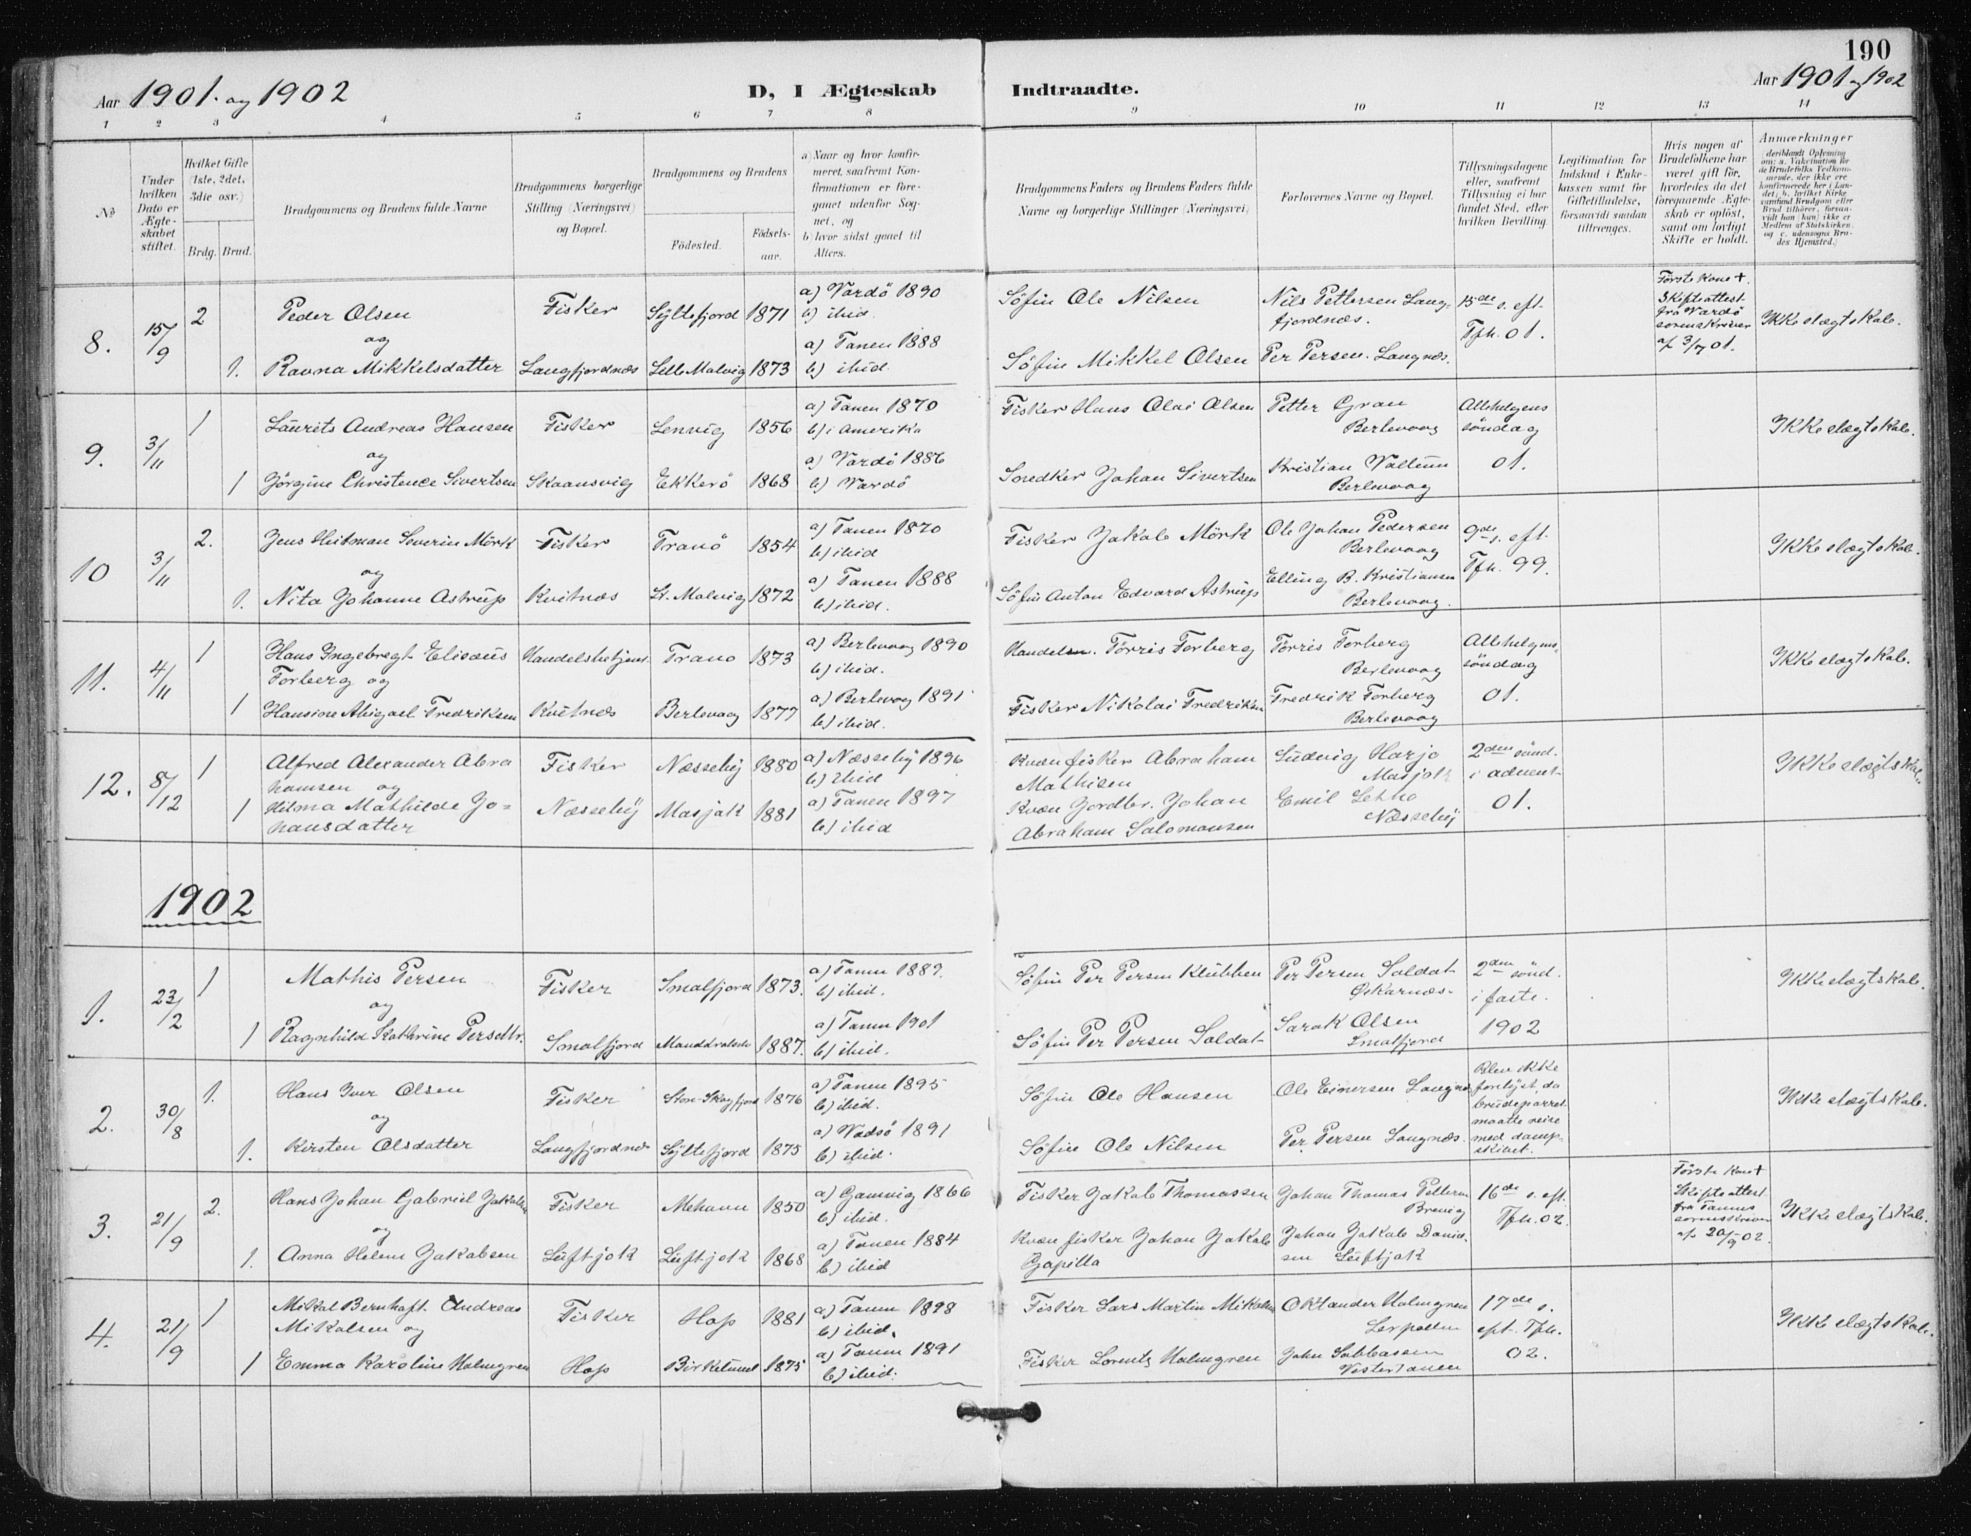 190
Aar 1901. og 1902
D, I Ægteskab Indtraadte.
Aar 1901 og 1902
1 2 3 4 5 6 7 8 9 10 11 12 13 14
No
Under hvilken Dato er Ægteskabet stiftet.
Hvilket Gifte (1ste, 2det, 3die osv.)
Brdg. Brud.
Brudgommens og Brudens fulde Navne
Brudgommens borgerlige Stilling (Næringsvei) og Bopæl.
Brudgommens og Brudens
Födested.
Födselsaar.
a) Naar og hvor konfirmeret, saafremt Konfirmationen er foregaaet udenfor Sognet, og
b) hvor sidst gaaet til Alters.
Brudgommens Faders og Brudens Faders fulde Navne og borgerlige Stillinger (Næringsvei)
Forlovernes Navne og Bopæl.
Tillysningsdagene eller, saafremt Tillysning ei har fundet Sted, efter hvilken Bevilling.
Legitimation for Indskud i Enkekassen samt for Giftetilladelse, forsaavidt saadan tiltrænges.
Hvis nogen af Brudefolkene har været gift för, hvorledes da det foregaaende Ægteskab er oplöst, samt om lovligt Skifte er holdt.
Anmærkninger
8. 15/9 2 Peder Olsen Fisker Syltefjord 1871 a) Vardö 1890 b) ibid. Söfin Ole Nilsen Nils Pettersen Langfjordnæs. 15de s. eft. Tfh. 01. Förste kone + Skifteattest fra Vardö sorenskriver af 3/7 01. Ikke slægtskab.
og
1. Ravna Mikkelsdatter Langfjordnæs Lille Molvig 1873 a) Tanen 1888 b) ibid. Söfin Mikkel Olsen Per Persen. Langnæs.
9. 3/11 1 Laurits Andreas Hansen Fisker Lenvig 1856 a) Tanen 1870 b) i Amerika Fisker Hans Olai Olsen Petter Gran Berlevaag Allehelgens söndag 01. Ikke slægtskab.
og
1 Jörgine Christence Sivertsen Skaansvig Ekkerö 1868 a) Vardö 1886 b) Vardö Snedker Johan Sivertsen Kristian Vallum Berlevaag
10 3/11 2. Jens Hutman Severin Mörk Fisker Tranö 1854 a) Tanen 1870 b) ibid Fisker Jakob Mörk Ole Johan Pedersen Berlevaag 9de s. eft. Tfh. 99. Ikke slægtskab.
og
1. Nita Johanne Astrup Kvitnæs St. Molvig 1872 a) Tanen 1888 b) ibid. Söfin Anton Edvard Astrup Elling B. Kristiansen Berlevaag.
11. 4/11 1 Hans Ingebregt Elisæus Forberg og Handelsbetjent Tranö 1873 a) Berlevaag 1890 b) ibid. Handelsm. Törris Forberg Törris Forberg Berlevaag Allehelgens söndag 01. Ikke slægtskab.
1 Hansine Abigael Fredriksen Kvitnæs Berlevaag 1877 a) Berlevaag 1891 b) ibid. Fisker Nikolai Fredriksen Fredrik Forberg Berlevaag
12. 8/12 1 Alfred Alexander Abrahamsen og Fisker Næsseby 1880 a) Næsseby 1896 b) ibid Kvæn fisker Abraham Mathisen Ludvig Harjo Masjok 2den sönd. i advent 01. Ikke slægtskab.
1 Hilma Mathilde Johansdatter Næsseby Masjok 1881 a) Tanen 1897 b) ibid Kvæn Jordbr. Johan Abraham Salomonsen Emil Næsseby
1902
1. 23/2 1 Mathis Persen Fisker Smalfjord 1873. a) Tanen 1889. b) ibid. Söfin Per Persen Klubben Per Persen Soldat Oskarnæs. 2den sönd. i faste. 1902 Ikke slægtskab.
og
1 Ragnhild Kathrine Persdtr. Smalfjord 1887. a) Tanen 1901 b) ibid. Söfin Per Persen Soldat Sarak Olsen Smalfjord
2. 30/8 1. Hans Iver Olsen Fisker Store-Skogfjord 1876 a) Tanen 1895 b) ibid. Söfin Ole Hansen Ole Einersen Langnæs Blev ikke fonlyst, da brudeparret maatte reise med dampskibet. Ikke slægtskab.
og
1. Kirsten Olsdatter Langfjordnæs Syltefjord 1875 a) Vadsö 1891 b) ibid. Söfin Ole Nilsen Per Persen Langnæs.
3. 21/9 2. Hans Johan Gabriel Jakobsen Fisker Mehavn 1850 a) Gamvig 1866 b) ibid. Fisker Jakob Thomassen Johan Thomas Pettersen Brevig 16de s. eft. Tfh. 02. Förste kone + Skifteattest fra Tanens sorenskriver af 20/9 02. Ikke slægtskab.
og
1. Anna Helene Jakobsen Luftjok Luftjok 1868 a) Tanen 1884 b) ibid Kvæn fisker Johan Jakob Gapilla Johan Jakob Danielsen Luftjok
4. 21/9 1 Mikal Bernhoft Andreas Mikalsen og Fisker Hop 1881 a) Tanen 1898 b) ibid. Fisker Lars Martin Mikalsen Oktander Halmgren Lerpollen 17de s. eft. Tfh. 02. Ikke slægtskab.
1 Emma Karoline Halmgren Hop Birkelund 1875 a) Tanen 1891 b) ibid. Fisker Lorents Halmgren John Sabbassen Vestertanen